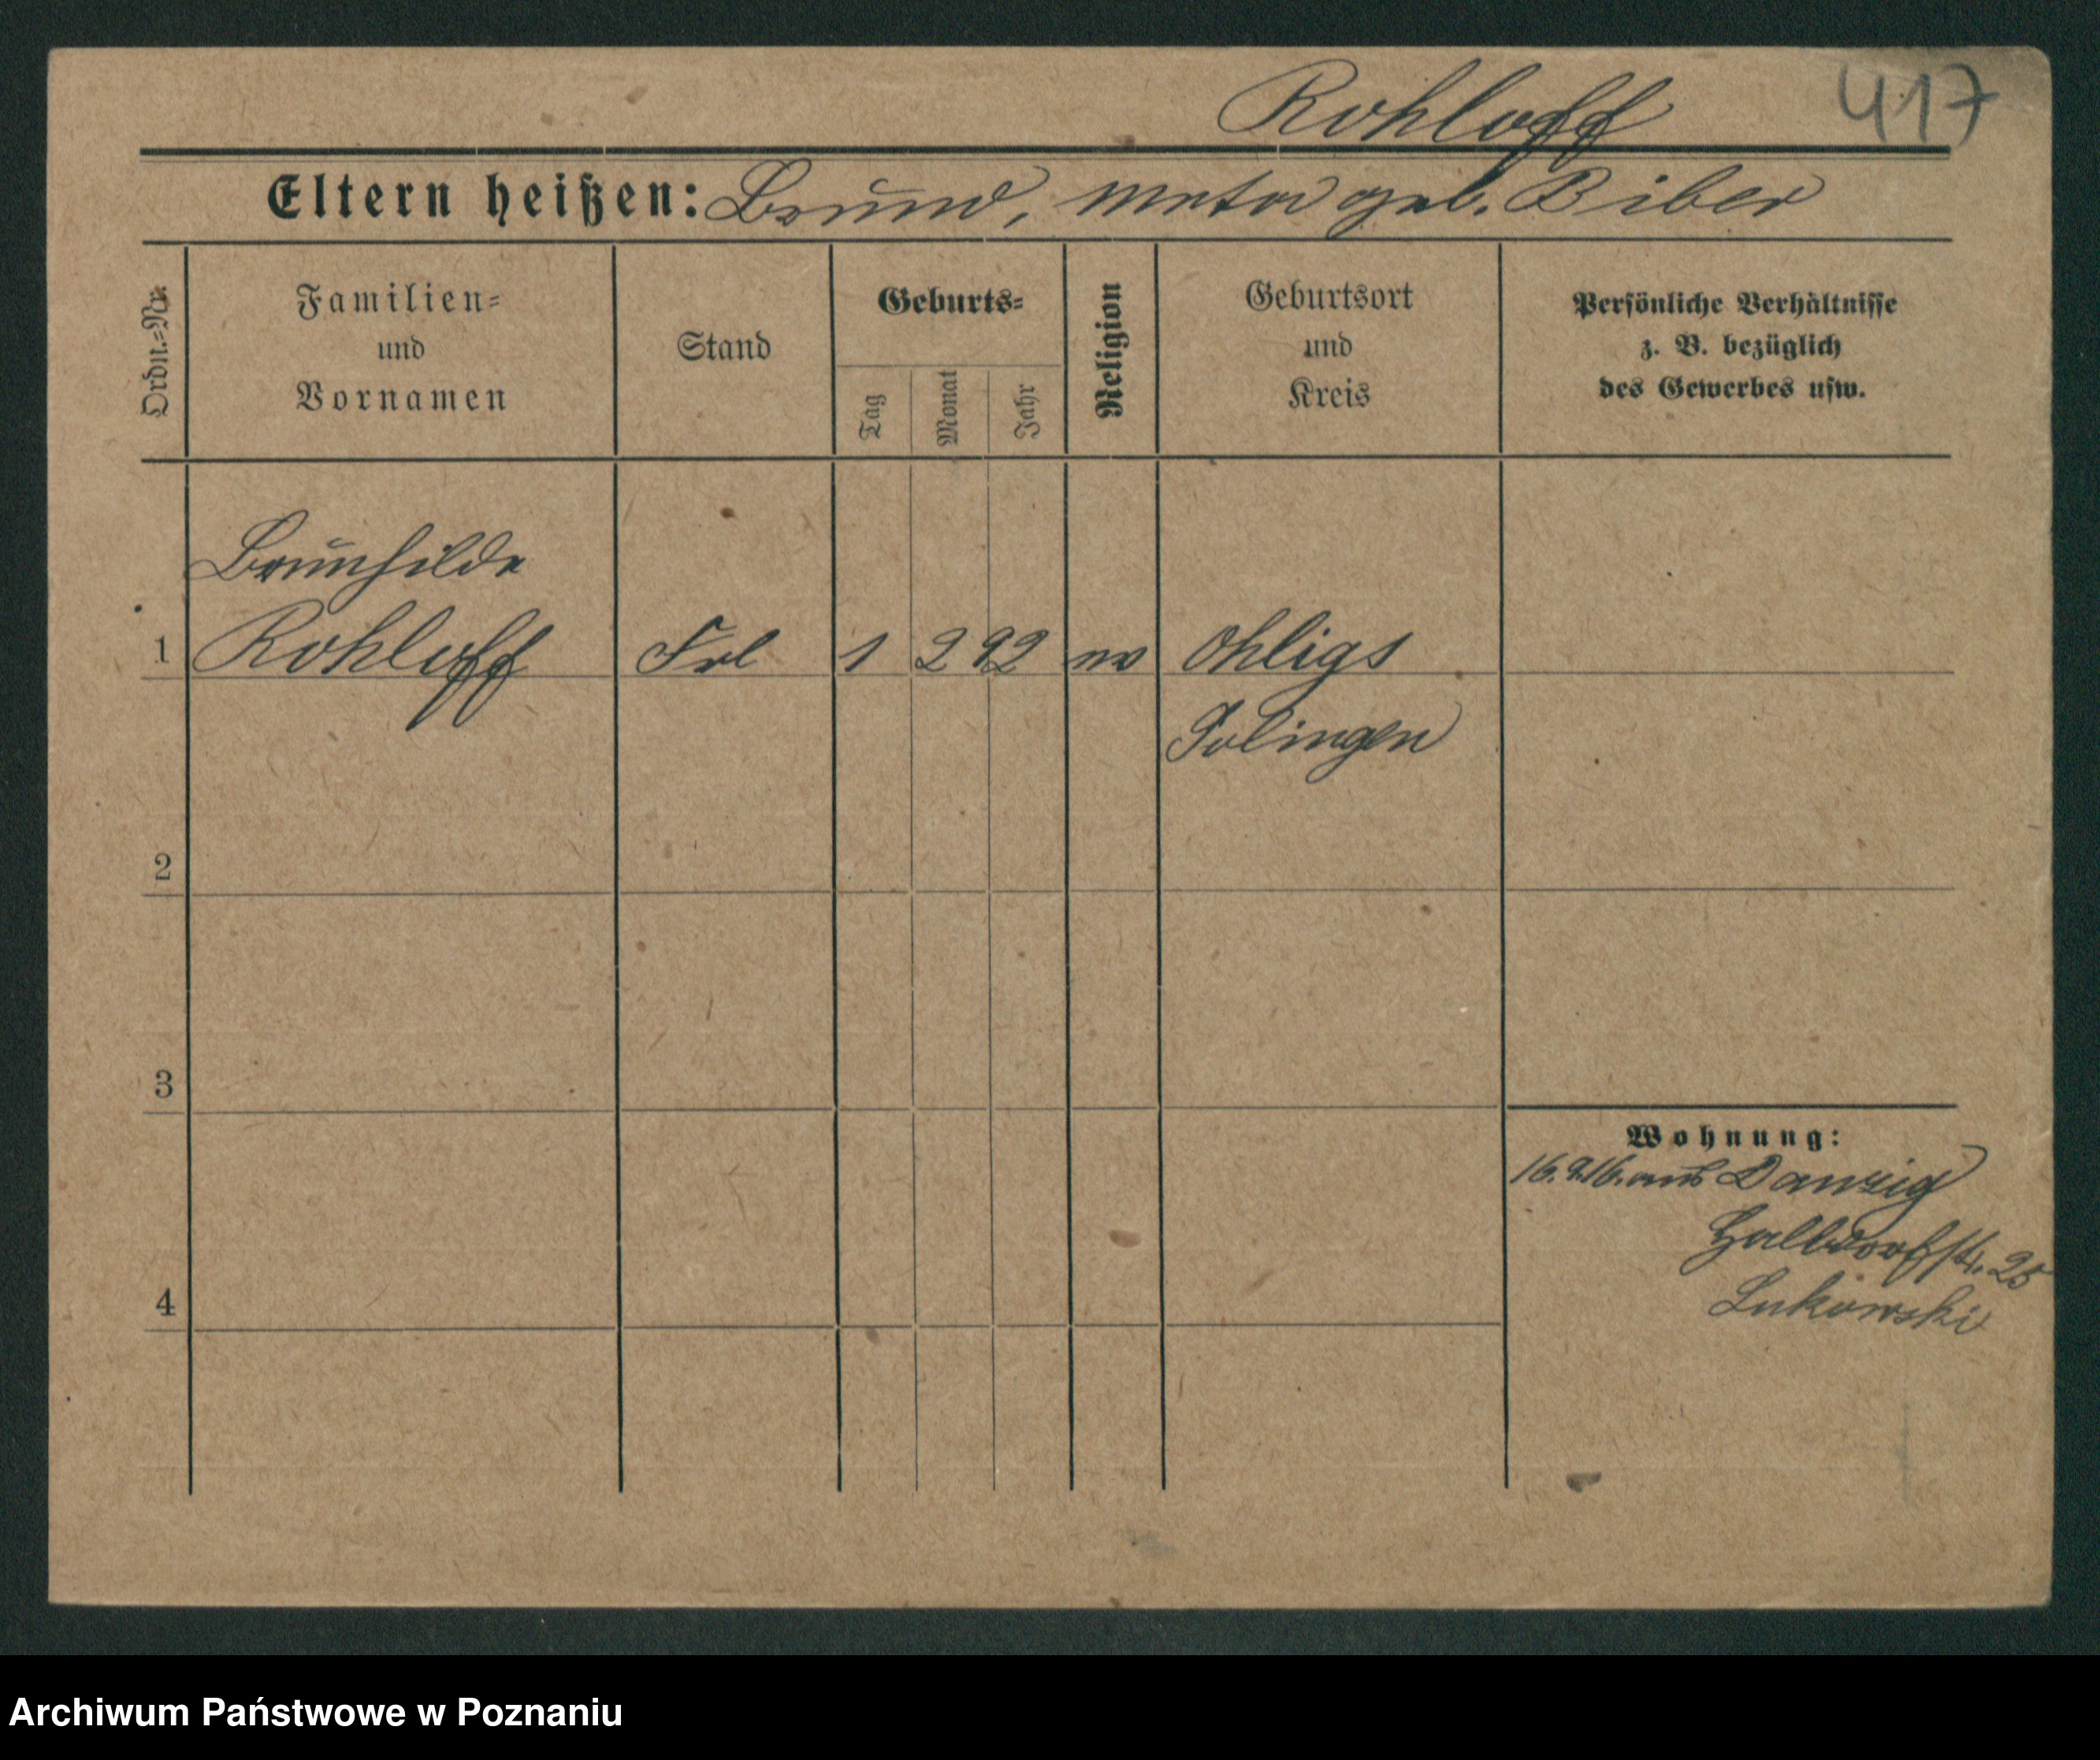 Rohloff 417
Eltern heißen: Bruno, Meta geb. Biber
Ordn.-Nr.
Familien- und Vornamen
Stand
Geburts-
Tag
Monat
Jahr
Religion
Geburtsort und Kreis
Persönliche Verhältnisse
z. B. bezüglich
des Gewerbes usw.
Brünhilde
1 Rohloff Frl 1 2 92 Ohligs
Solingen
2
3
Wohnung:
aus Danzig
Halbdorfstr. 25
4 Lukowski
Archiwum Państwowe w Poznaniu